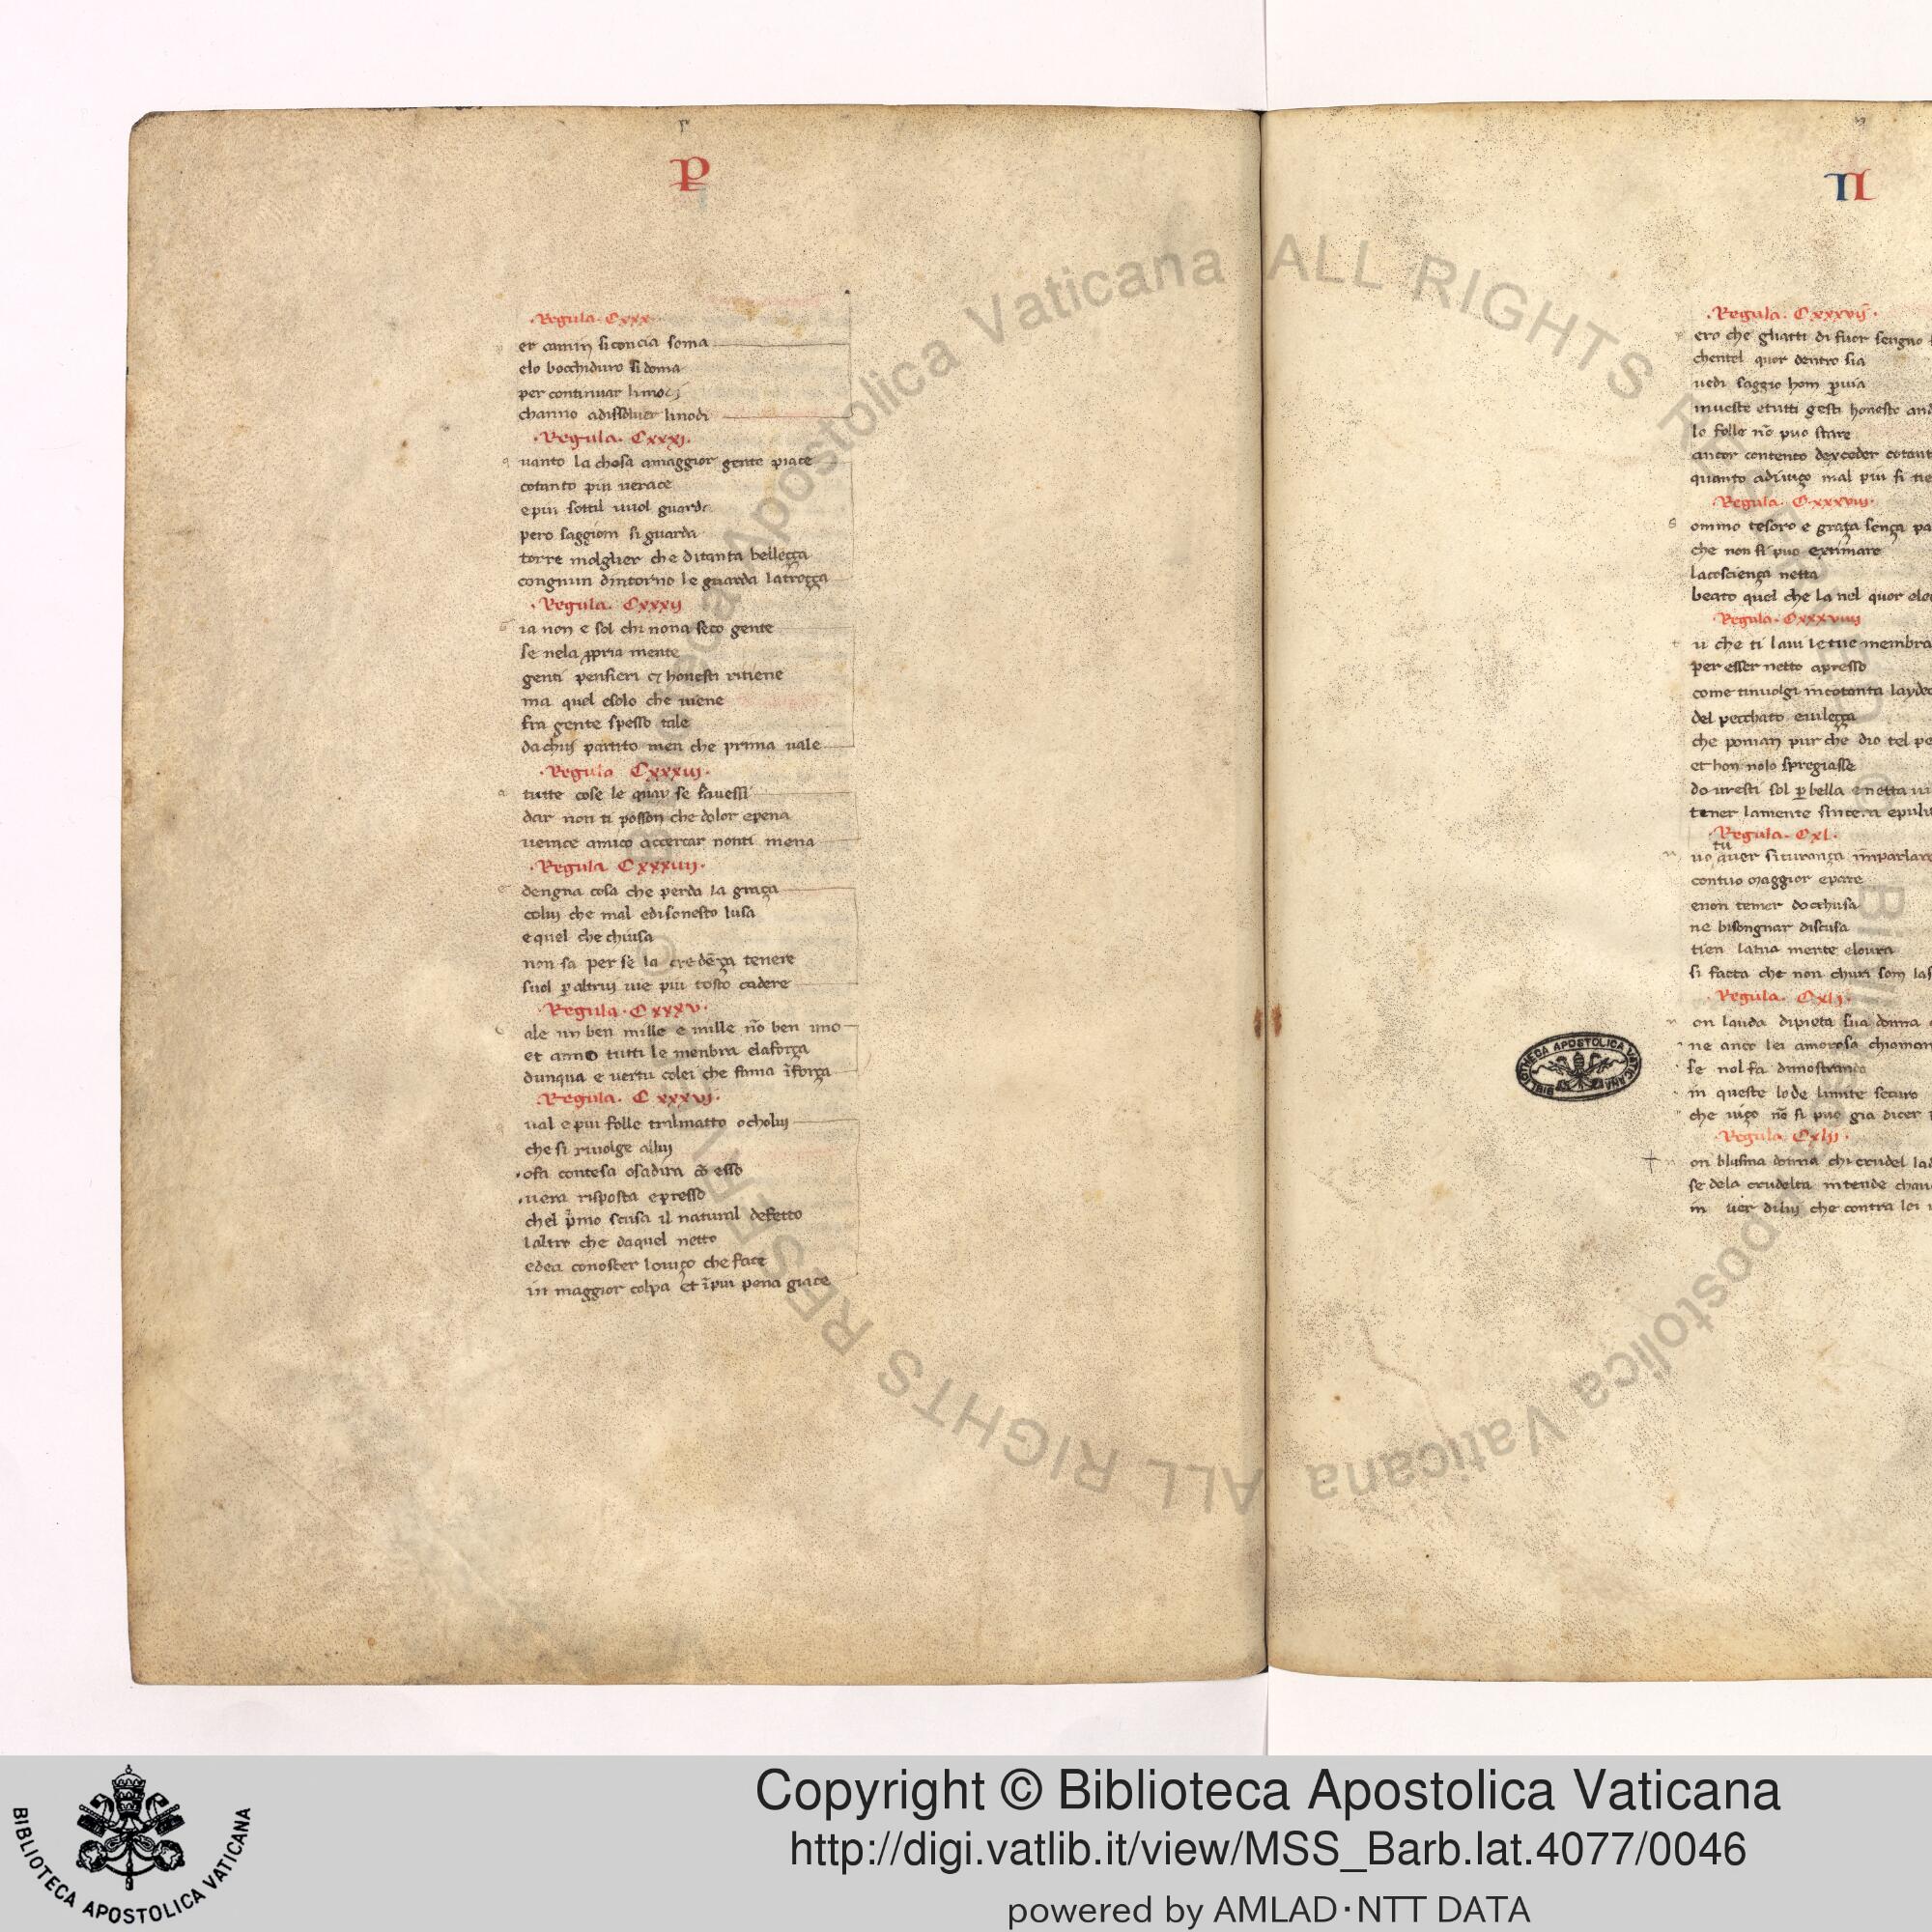 P
·Regula· Cxxx
er camin si concia soma
elo bocchiduro si doma
per continuar
channo adissoluer linodi
·Regula· Cxxxj·
q uanto la chosa amaggior gente piace
cotanto piu uerace
e piu sottil uuol guarda
pero saggiom si guarda
torre molglier che ditanta belleçça
congnun dintorno le guarda latreçça
·Regula· Cxxxij
ia non e sol chi nona seco gente
se nela ppria mente
genti pensieri et honesti ritiene
ma quel esolo che uiene
fra gente spesso tale
dachuj partito men che prima uale
·Regula Cxxxiij·
tutte cose le quay se
dar non ti posson che dolor epena
uerace amico accertar nonti mena
·Regula Cxxxiiij·
e dengna cosa che perda la graça
colui che mal edisonesto lusa
e quel che chiusa
non sa per se la credēça tenere
suol p altrui uie piu tosto cadere
·Regula· Cxxxv·
uale un ben mille e mille nō ben uno
et anno tutti le menbra elaforça
dunqua e uertu colei che fama īforça
·Regula· Cxxxvj·
ual e piu folle tralmatto o cholui
che si riuolge allui
·osa contesa osadira cō esso
·uera risposta epresso
chel pmo scusa il natural defetto
laltro che daquel netto
edea conoscer louiço che face
in maggior colpa et īpiu pena giace
n
·Regula· Cxxxvij·
ero che ghatti di fuor sengno
chentel quor dentro sia
uedi saggio hom puia
mueste etutti gesti honesto
lo folle nō puo stare
ancor contento
quanto mal piu si
·Regula· Cxxxviij·
s ommo tesoro e graça sença
che non si puo extimare
lacosciença netta
beato quel che la nel quor
·Regula· Cxxxviiij
t u che ti laui le tue membra
per esser netto apresso
come tinuolgi incotanta
del pecchato euileçça
che poman pur che dio tel
et hon nolo spregiasse
douresti sol p bella enetta
tener lamente
·Regula· Cxl·
tu
uo auer sicurança inparlare
contuo maggior epare
enon temer docchusa
ne bisongnar discusa
tien latua mente
si facta che non churi som
·Regula· Cxlj·
n on lauda dipieta sua donna
ne anco lei amorosa
se nol fa dimostrança
in queste lode limite securo
che uiço nō si puo gia dicer
·Regula· Cxlij·
n on blasma donna chi crudel
se dela crudelta intende
in uer dilui che contra lei
BIBLIOTHECA APOSTOLICA VATICANA
© Biblioteca Apostolica Vaticana ALL RIGHTS RESERVED © Biblioteca Apostolica Vaticana ALL RIGHTS RESERVED
BIBLIOTECA APOSTOLICA VATICANA
Copyright © Biblioteca Apostolica Vaticana
http://digi.vatlib.it/view/MSS_Barb.lat.4077/0046
powered by AMLAD·NTT DATA